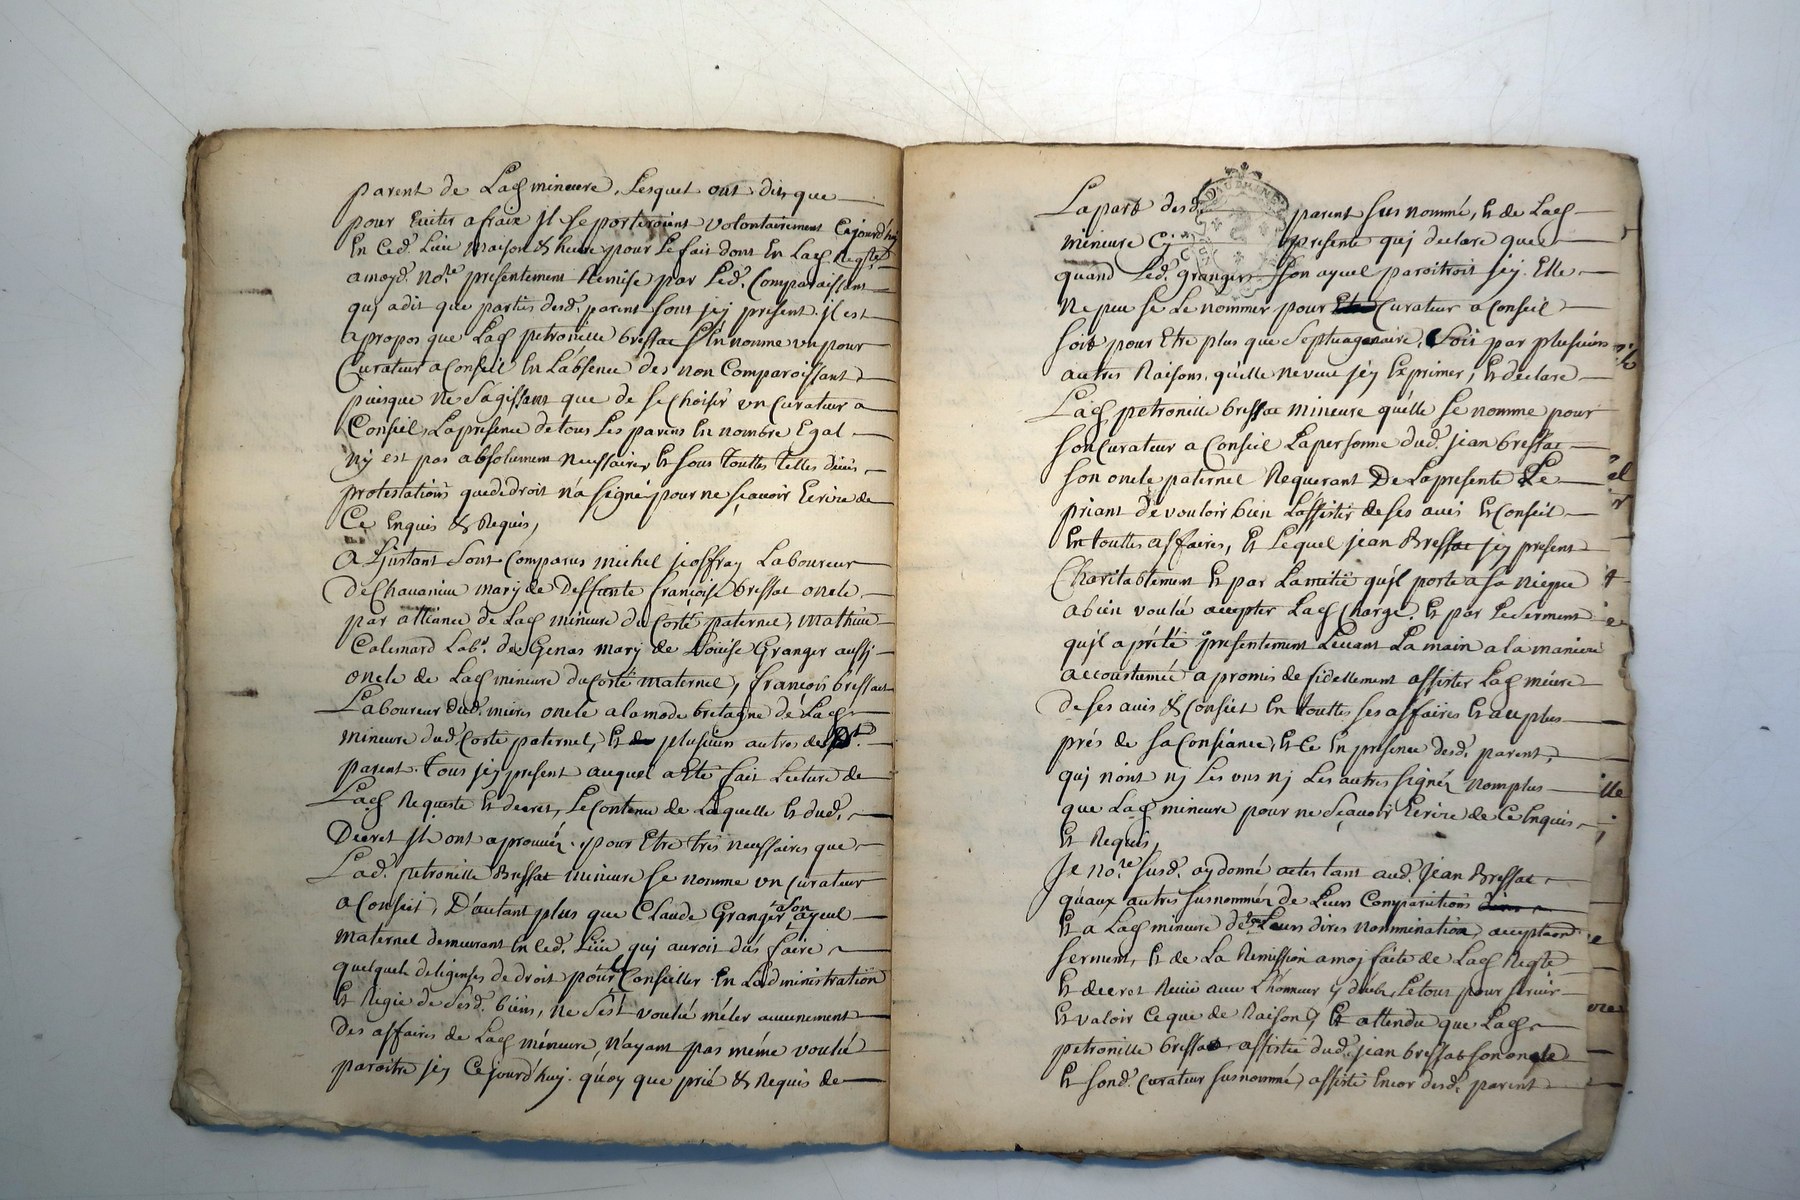 parent de Lad mineure, Lesquel ont dit que
pour Euiter afraix Jl se porteroient volontairement Cejourd'huy
En Ced. Lieu maison & heure pour Le fait dont En Lad. Reqte
amoyd. nore. presentement Remise par Led. Comparoissant
quj adit que parties desd. parent sont jcy present. jl est
apropos que Lad petronille bressat s'En nomme vn pour
Curateur a Conseil En Labsence des non Comparoissant
puisque ne s'agissant que de se Choisir vn Curateur a
Conseil, La presence de tous Les parens En nombre Egal
ny est pas absolumen necessaire, Et sous touttes telles
protestations que de droit n'a signé pour ne sçauoir Ecrire de
Ce Enquis & Requis,
A Ljnstant sont Comparus michel jeoffray Laboureur
De Chauanieu mary de deffunte françoise bressat oncle
par alliance de Lad mineure du Costé paternel, mathieu
Calemard Labr. de Genas mary de Loüise Granger aussj
oncle de Lad mineure du Costé maternel, françois bressat
Laboureur dud. mieres oncle alamode bretagne de Lad
mineure dud. Costé paternel, Et plusieurs autres
parent. tous jcy present auquel a Eté fait Lecture de
Lad Requeste Et decret, Le Contenu de Laquelle Et dud.
Decret jls ont aprouuéz. pour Etre trés necessaires que
Lad. petronille Bressat mineure se nomme vn Curateur
a Conseil, D'autant plus que Claude Granger son ayeul
maternel demeurant En Led. Lieu quj auroit dus faire
quelque deligenses de droit pour Conseiller En Ladministration
Et Regie de sesd. biens, ne s'est voulû méler aucunement
des affaires de Lad mineure, n'ayant pas méme voulû
paroitre jcy Cejourd'huy. quoy que prié & Requis de
La part desd. parent sus nommé, Et de Lad
mineure Cy presente quj declare que
quand Led. Granger son ayeul paroitroit jcy. Elle
ne peu se Le nommer pour Curateur a Conseil
soit pour Etre plus que septuagenaire, soit par plusieurs
autres Raisons, qu'elle ne veut jcy Exprimer, Et declare
Lad petronille bressat mineure qu'elle se nomme pour
son Curateur a Conseil La personne dud. jean bressat
son oncle paternel Requerant De La presente Le
priant de vouloir bien L'assister de ses auis Et Conseil
En touttes affaires, Et Lequel jean Bressat jcy present
Charitablement Et par Lamitié qu'jl porte a sa niepce
a bien voulû accepter Lad Charge. Et par Le serment
qu'jl a prété presentement Leuant La main a la maniere
accoustumée a promis de fidellement assister Lad méure
de ses auis & Conseil En touttes ses affaires Et au plus
prés de sa Consiance, Et Ce En presence desd. parent,
quj n'ont nj Les vns nj Les autres signéz nomplus
que Lad mineure pour ne sçauoir Ecrire de Ce Enquis
Et Requis,
Je nore. susd. ay donné actes tant aud. Jean Bressat
qu'aux autres susnomméz de Leurs Comparutions
Et a Lad mineure de Leurs dires nomination, acceptation
serment, Et de La Remission amoj faite de Lad Reqte
Et decret Le tout pour seruir
Et valoir Ce que de Raison, Et attendu que Lad
petronille bressat assistée dud. jean bressat son oncle
Et sond. Curateur susnommé, assisté Encor desd. parent